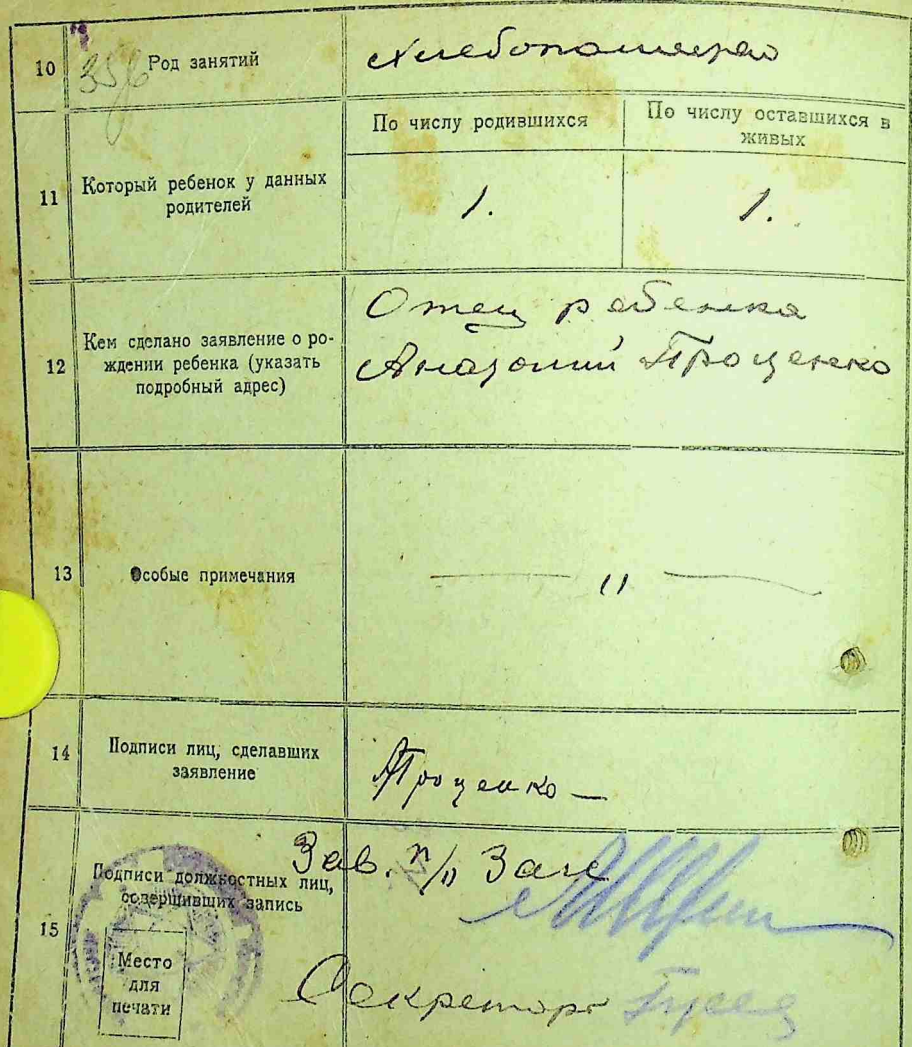 10
356
Род занятий
11
Который ребенок у данных
родителей
По числу родившихся
По числу оставшихся в
живых
1.
1.
12
Кем сделано заявление о ро-
ждении ребенка (указать
подробный адрес)
Отец ребенка
Проценко
13
Особые примечания
— " —
14
Подписи лиц, сделавших
заявление
АПроценко —
15
Подписи должностных лиц,
совершивших запись
Место
для
печати
Зав. п/о Загс
Секретарь